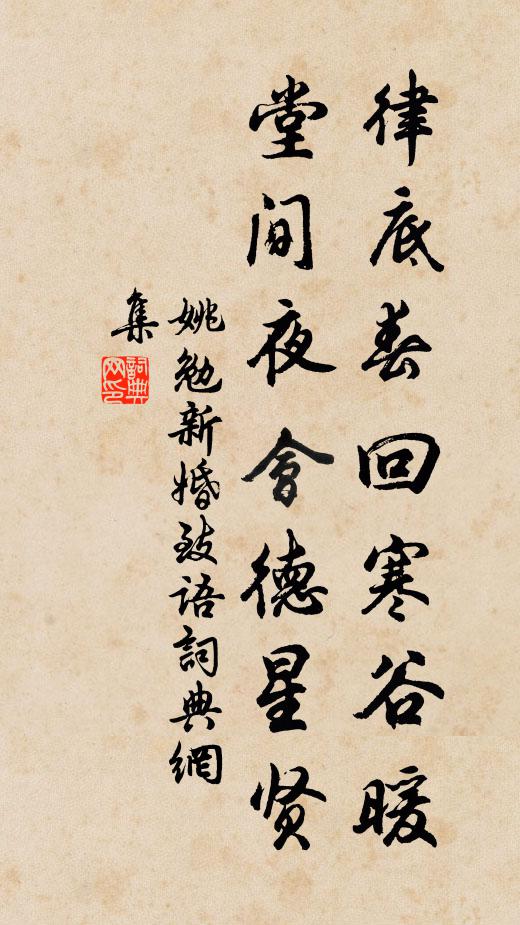 律底春回寒谷暖
堂间夜會德星贤
姚勉新婚致语詞典網
集
詞典网印